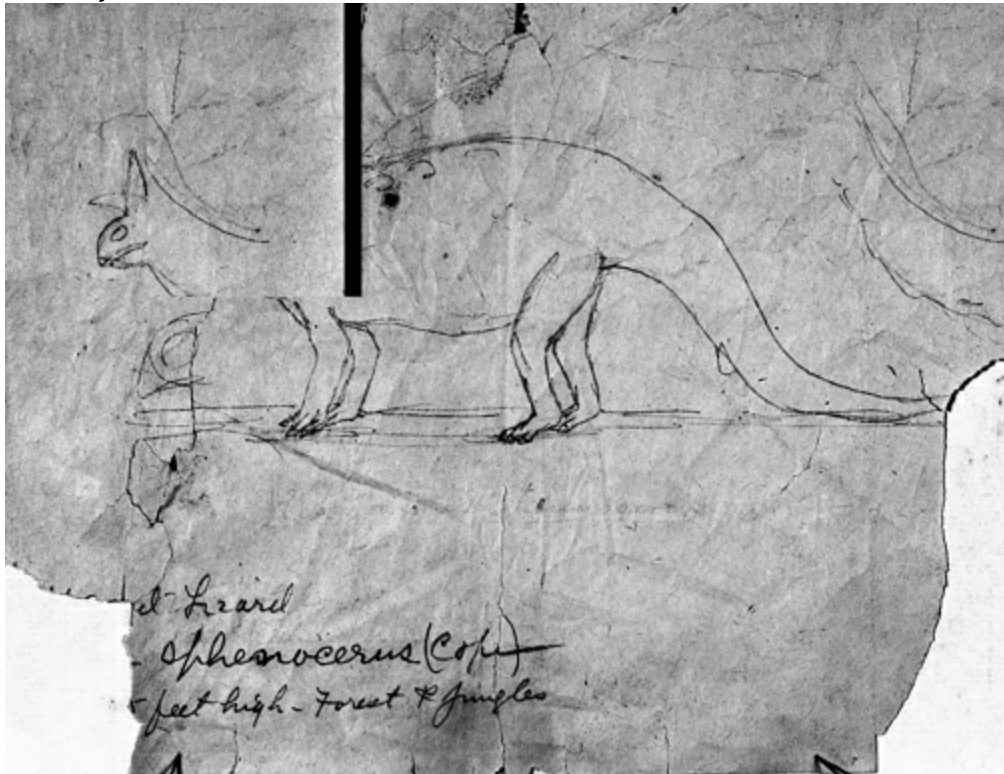 d Lizard
- sphenocerus (Cope)
feet high - Forest & Jungles